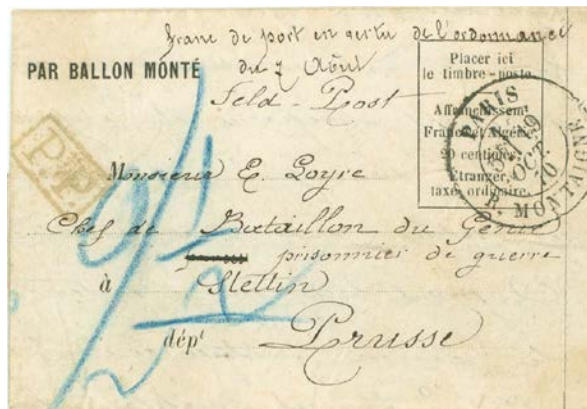 franc de port en vertu de l'ordonnance
du 7 Août
PAR BALLON MONTÉ
Feld-Post
Placer ici
le timbre-poste
Affranchissemt
France et Algérie
20 centimes.
Étranger,
taxe ordinaire.
PARIS
5E 29
OCT.
70
R. MONTAIGNE
P.P.
Monsieur E. Loyre
Chef de Bataillon du Génie
prisonnier de guerre
à Stettin
dépt Prusse